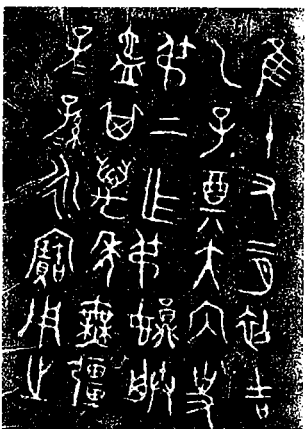 隹十又二月初吉
乙子奠大内史
弔上乍弔娟朕
也其萬年無疆
子孫永寶用之